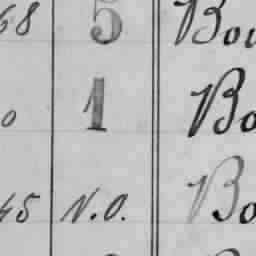 68 5 Bou
0 1 Bo
45 N.O. Bo